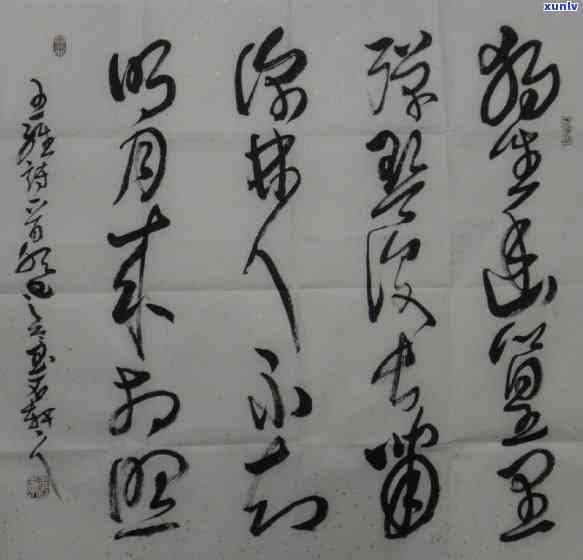 独坐幽篁里
弹琴复长啸
深林人不知
明月来相照
王维诗一首
xunlv